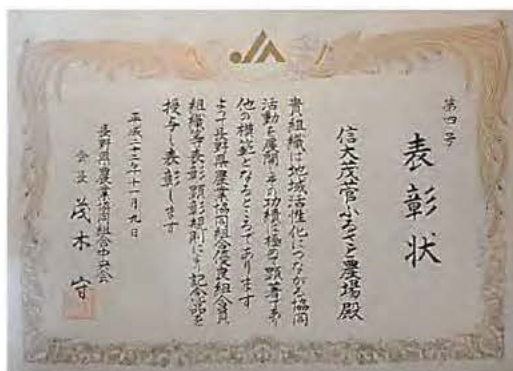 JA
第四号
表彰状
信大茂菅ふるさと農場殿
貴組織は地域活性化につながる協同
活動を展開しその功績は極めて顕著であり
他の模範となるところであります
よって長野県農業協同組合優良組合員
組織等表彰顕彰規則により記念品を
授与し表彰します
平成二十二年十一月九日
長野県農業協同組合中央会
会長 茂木 守